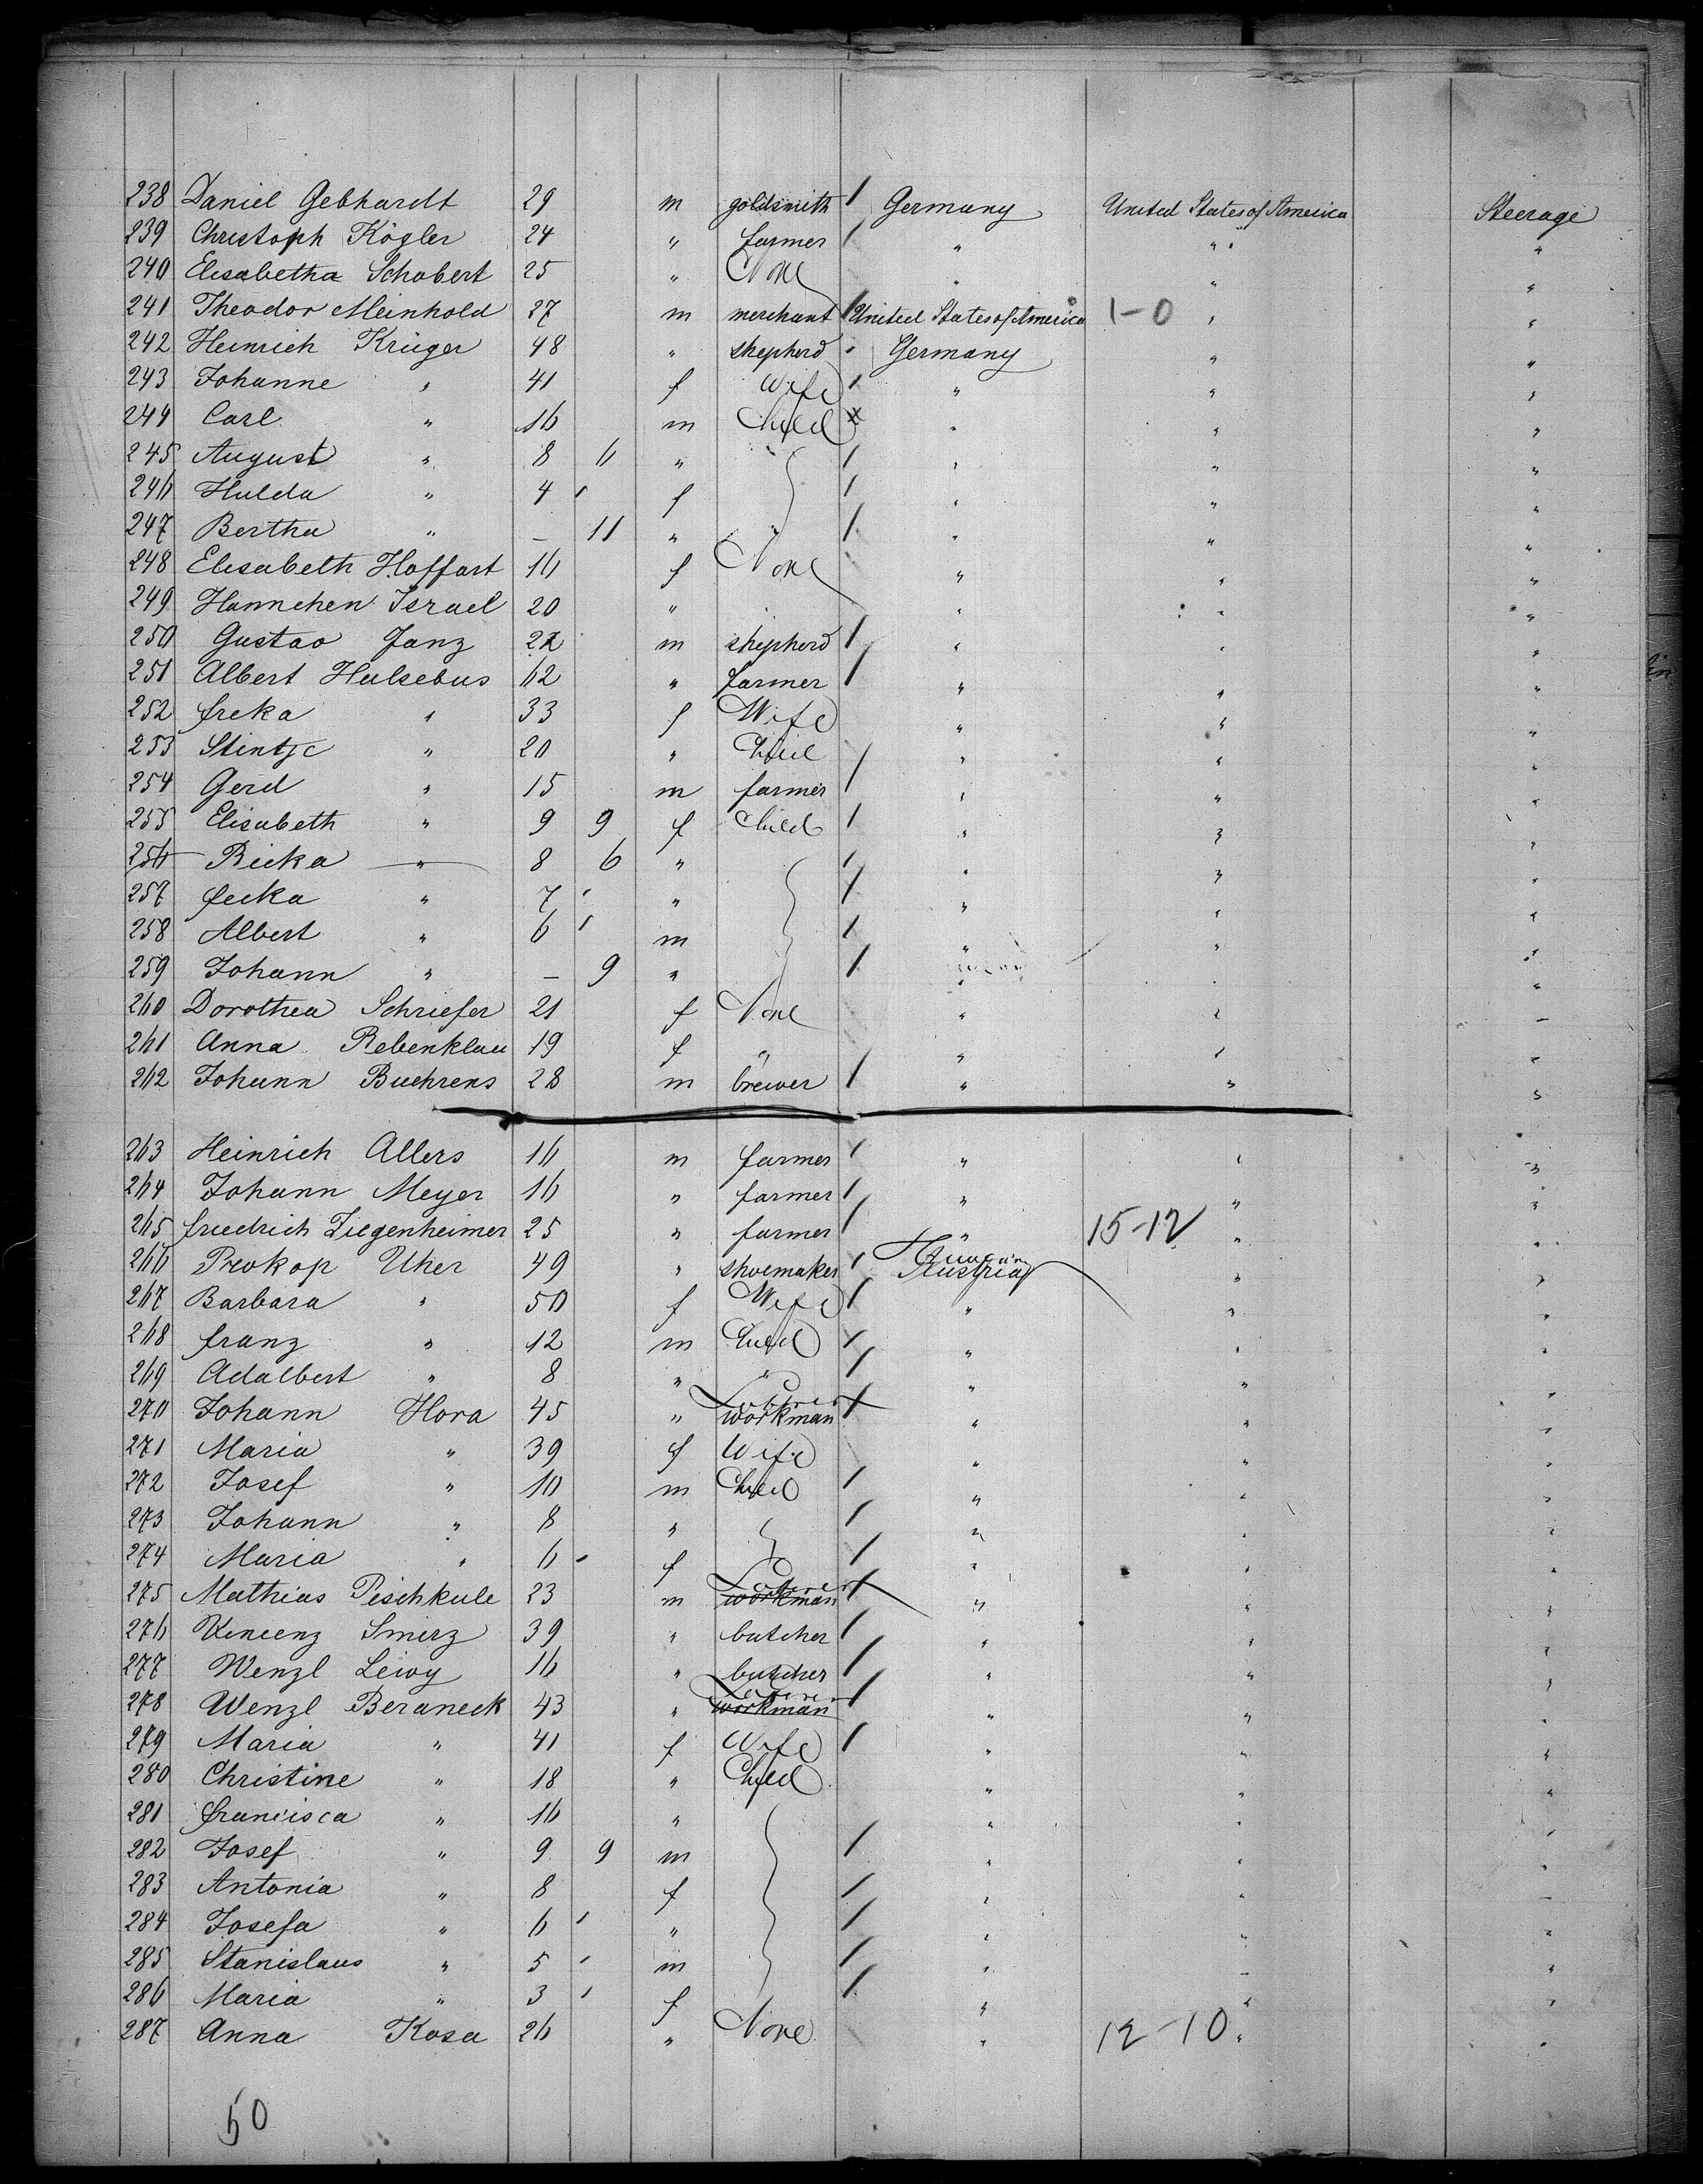 238 Daniel Gebhardt 29 m goldsmith / Germany United States of America Steerage
239 Christoph Kögler 24 " farmer / " " "
240 Elisabetha Schobert 25 " None " " "
241 Theodor Meinhold 27 m merchant / United States of America 1-0 " "
242 Heinrich Krüger 48 " shepherd Germany " "
243 Johanne " 41 f Wife / " " "
244 Carl " 16 m Child x " " "
245 August " 8 6 " / " " "
246 Hulda " 4 f / " " "
247 Bertha " – 11 " / " " "
248 Elisabeth Hoffart 16 f None " " "
249 Hannchen Israel 20 " " " "
250 Gustav Janz 22 m shepherd / " " "
251 Albert Hulsebus 62 " farmer / " " "
252 freka " 33 f Wife " " "
253 Stintje " 20 " Child " " "
254 Gerd " 15 m farmer / " " "
255 Elisabeth " 9 9 f Child / " " "
256 Ricka " 8 6 " / " " "
257 fecka " 7 " / " " "
258 Albert " 6 m / " " "
259 Johann " – 9 " / " " "
260 Dorothea Schriefer 21 f None " " "
261 Anna Rebenklau 19 f " " " "
262 Johann Buehrens 28 m brewer / " " "
263 Heinrich Allers 16 m farmer / " " "
264 Johann Meyer 16 " farmer / " " "
265 friedrich Ziegenheimer 25 " farmer / " 15-12 " "
266 Prokop Uher 49 " shoemaker / Austria " "
267 Barbara " 50 f Wife / " " "
268 franz " 12 m Child / " " "
269 Adalbert " 8 " " / " " "
270 Johann Hora 45 " Laborer workman / " " "
271 Maria " 39 f Wife " " "
272 Josef " 10 m Child / " " "
273 Johann " 8 " / " " "
274 Maria " 6 f / " " "
275 Mathias Pischkule 23 m Laborer workman / " " "
276 Vincenz Smirz 39 " butcher / " " "
277 Wenzl Leivy 16 " butcher / " " "
278 Wenzl Beraneck 43 " Laborer workman / " " "
279 Maria " 41 f Wife / " " "
280 Christine " 18 " Child " " "
281 francisca " 16 " " " "
282 Josef " 9 9 m / " " "
283 Antonia " 8 f / " " "
284 Josefa " 6 " / " " "
285 Stanislaus " 5 m / " " "
286 Maria " 3 f / " " "
287 Anna Kosa 26 " None " 12-10 " "
50